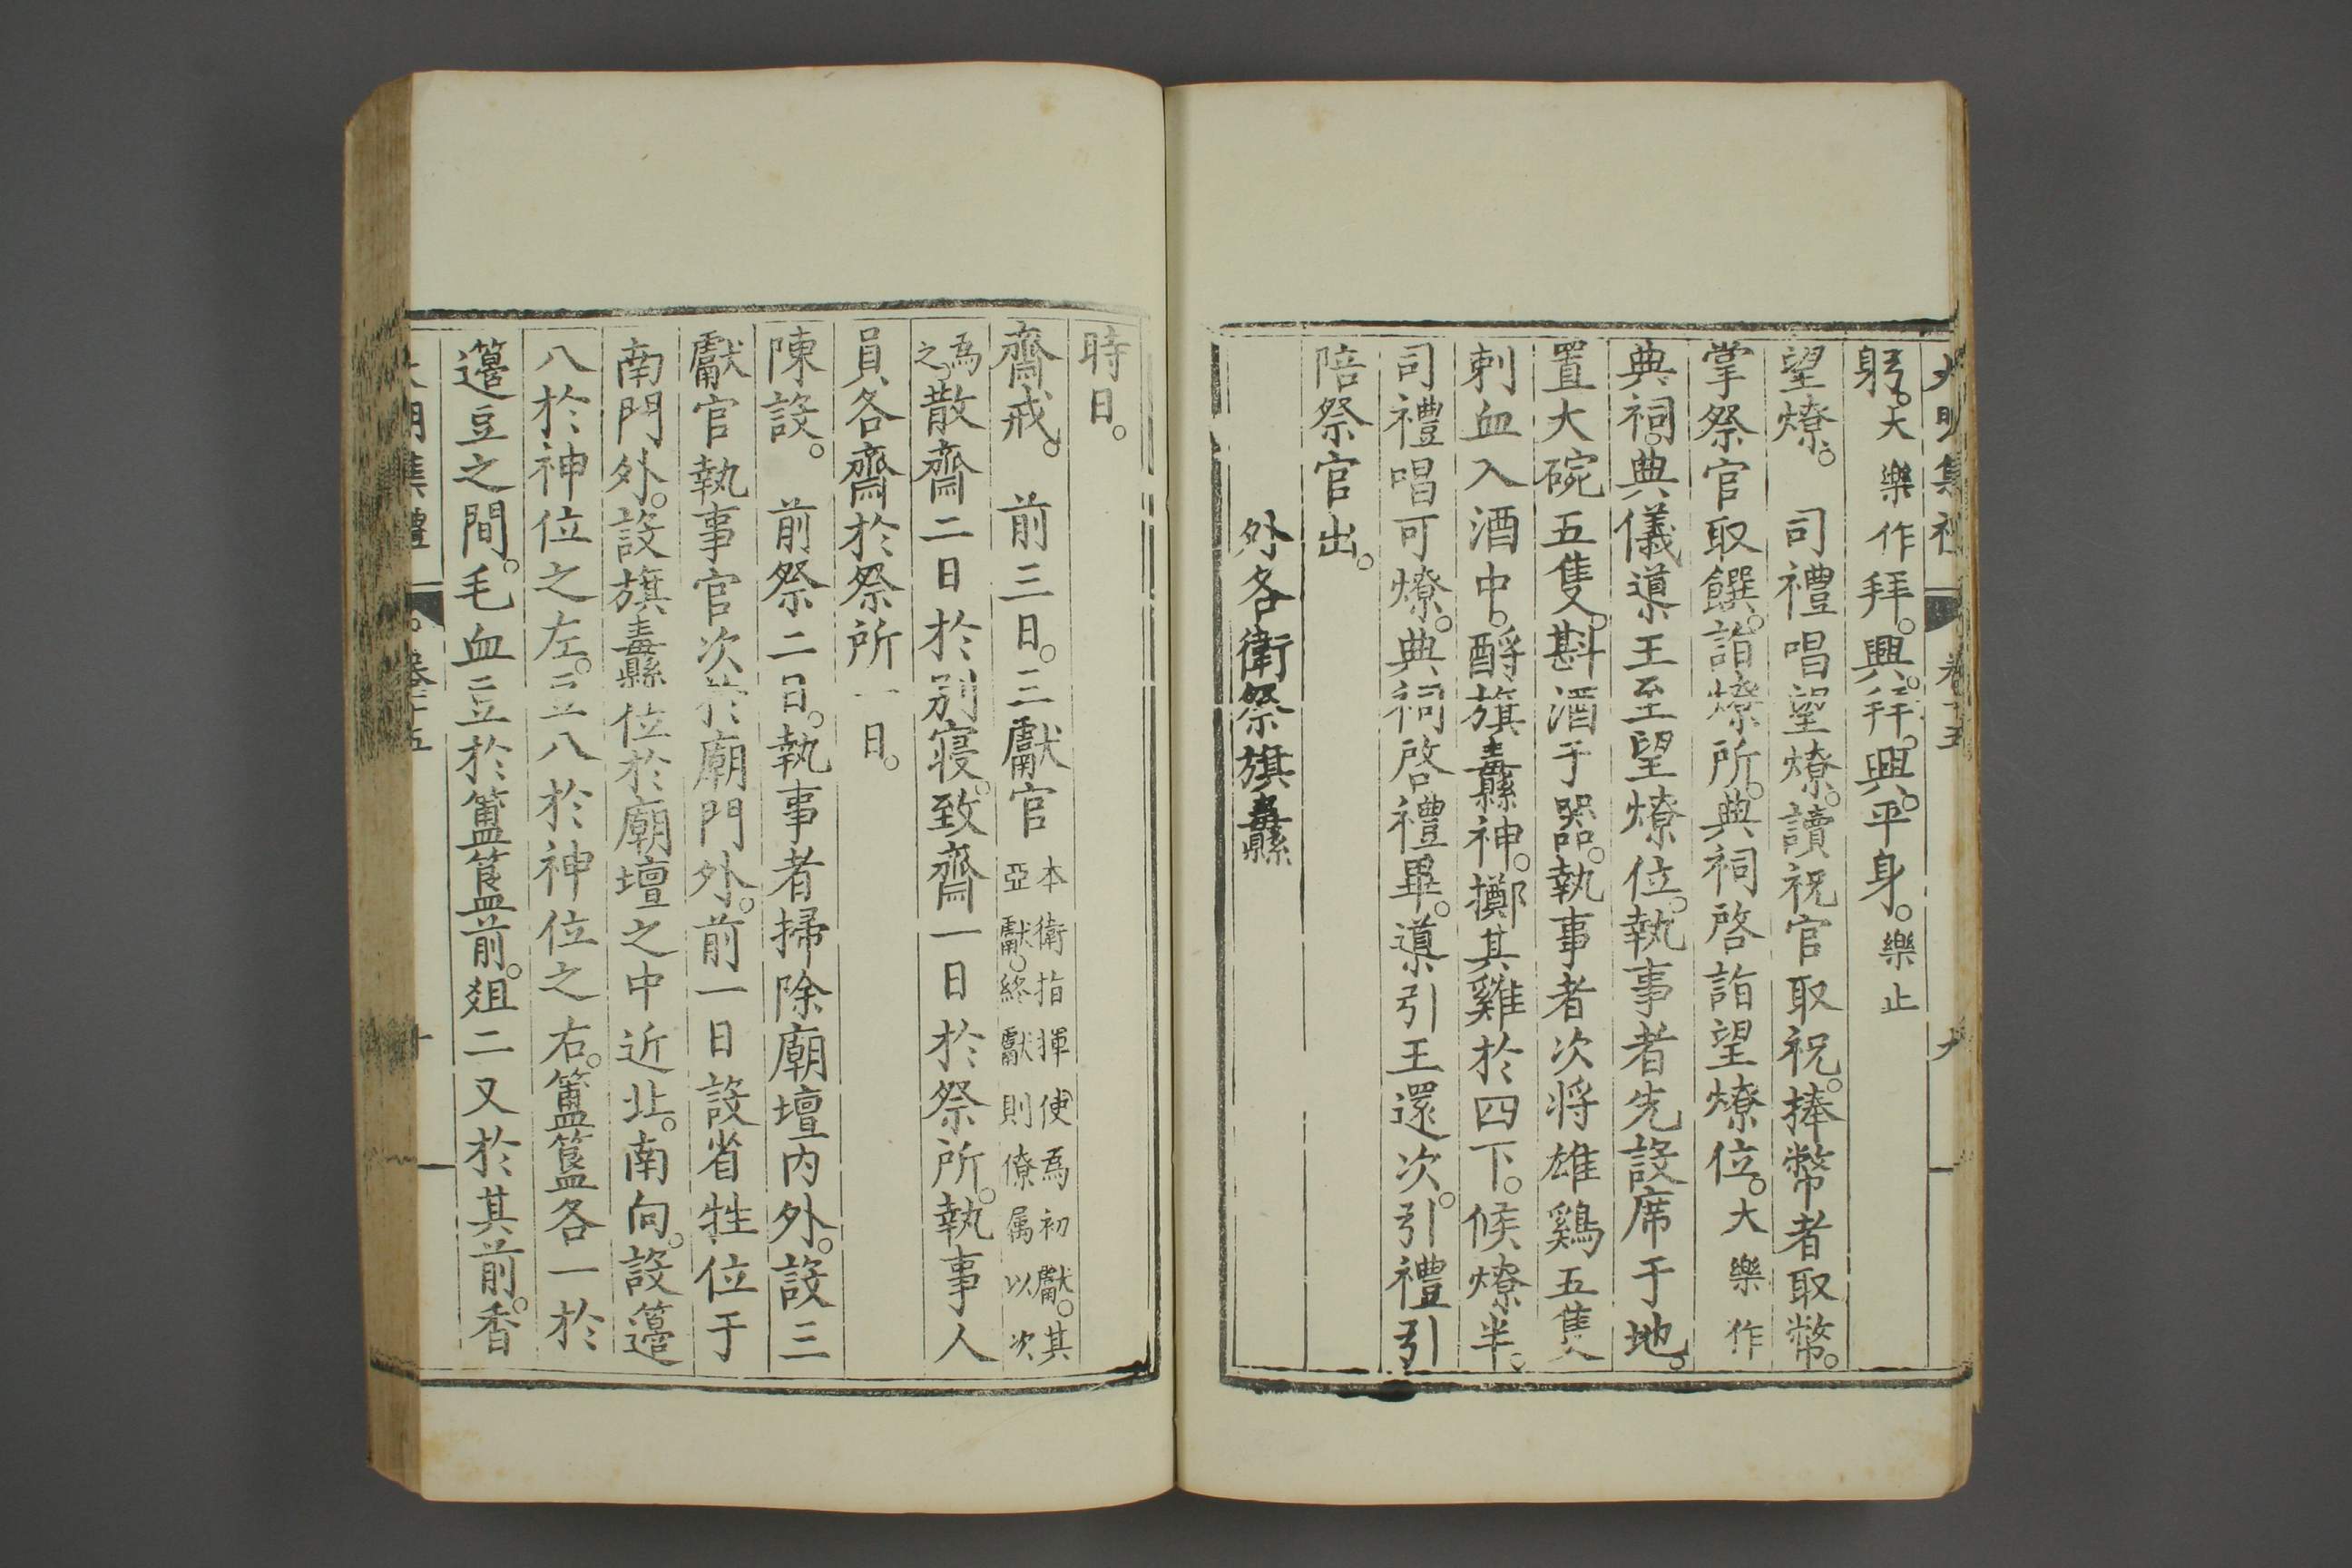 大明集禮 卷十五 九
躬。大樂作拜。興。拜。興。平身。樂止
望燎。 司禮唱望燎。讀祝官取祝。捧幣者取幣。
掌祭官取饌。詣燎所。典祠啓詣望燎位。大樂作
典祠。典儀導王至望燎位。執事者先設席于地。
置大碗五隻。斟酒于器。執事者次將雄鷄五隻
刺血入酒中。酹旗纛神。擲其雞於四下。候燎半。
司禮唱可燎。典祠啓禮畢。導引王還次。引禮引
陪祭官出。
外各衛祭旗纛
時日。
齋戒。 前三日。三獻官本衛指揮使爲初獻。其亞獻。終獻則僚属以次
爲之。散齋二日於別寢。致齋一日於祭所。執事人
員各齋於祭所一日。
陳設。 前祭二日。執事者掃除廟壇内外。設三
獻官執事官次於廟門外。前一日設省牲位于
南門外。設旗纛位於廟壇之中近北。南向。設籩
八於神位之左。豆八於神位之右。簠簋各一於
籩豆之間。毛血豆於簠簋前。俎二又於其前。香
大明集禮 卷三十五 十